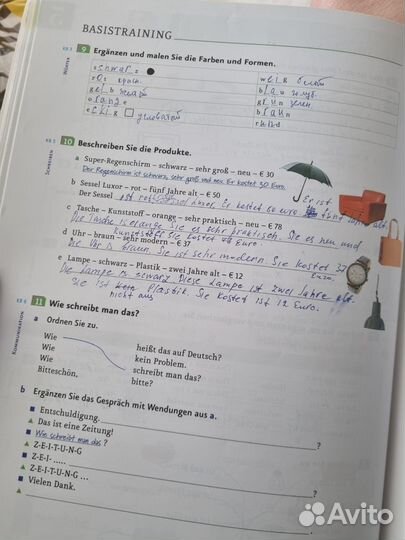 BASISTRAINING
KB 3
WÖRTER
9 Ergänzen und malen Sie die Farben und Formen.
schwarz
weiß белый
rot крас.
blau голуб.
gelb желт
grün зелен.
orange
braun
eckig угловатой
rund
KB 5
SCHREIBEN
10 Beschreiben Sie die Produkte.
a Super-Regenschirm – schwarz – sehr groß – neu – € 30
Der Regenschirm ist schwarz, sehr groß und neu. Er kostet 30 Euro.
b Sessel Luxor – rot – fünf Jahre alt – € 50
Er ist fünf Jahre alt.
c Tasche – Kunststoff – orange – sehr praktisch – neu – € 78
Die Tasche ist orange. Sie ist sehr praktisch. Sie es neu und
Kunststoff. Sie kostet Euro.
d Uhr – braun – sehr modern – € 37
Die Uhr is braun. Sie ist sehr modern. Sie kostet 37
Euro.
e Lampe – schwarz – Plastik – zwei Jahre alt – € 12
Die Lampe is scwarz. Diese Lampe ist zwei Jahre alt.
Sie ist aus Plastik. Sie kostet ist 12 Euro.
nicht aus
KB 6
KOMMUNIKATION
11 Wie schreibt man das?
a Ordnen Sie zu.
Wie
Wie heißt das auf Deutsch?
Wie kein Problem.
Wie schreibt man das?
Bitteschön, bitte?
b Ergänzen Sie das Gespräch mit Wendungen aus a.
■ Entschuldigung, ?
▲ Das ist eine Zeitung!
■ Wie schreibt man das?
▲ Z-E-I-T-U-N-G
■ Z-E-I- ..... ?
▲ Z-E-I-T-U-N-G ...
■ Vielen Dank.
▲
Avito